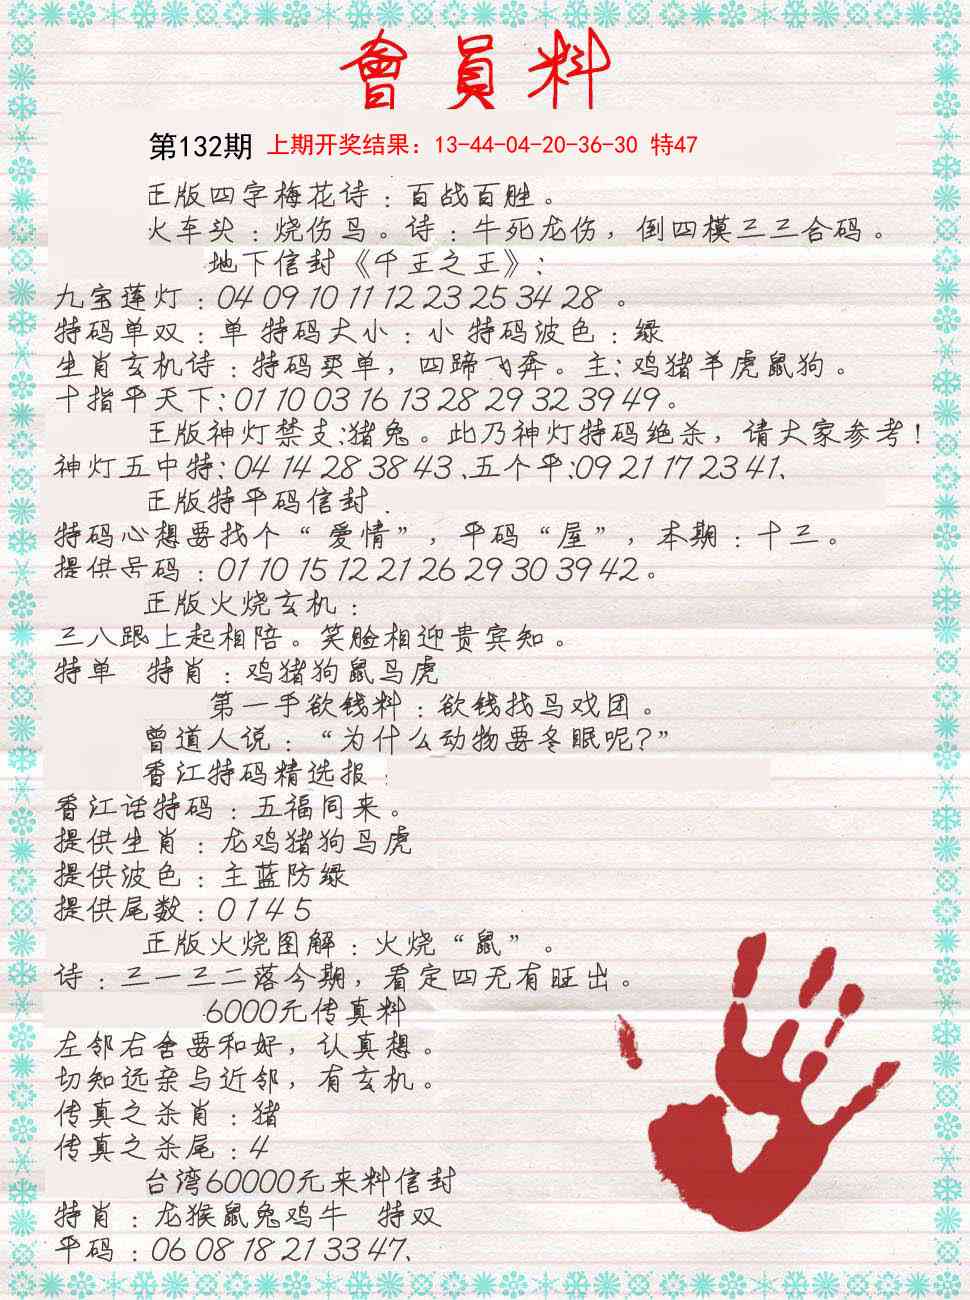 會員料
第132期 上期开奖结果：13-44-04-20-36-30 特47
正版四字梅花诗：百战百胜。
火车头：烧伤鸟。诗：牛死龙伤，倒四模三三合码。
地下信封《千王之王》：
九宝莲灯：04 09 10 11 12 23 25 34 28 。
特码单双：单 特码大小：小 特码波色：绿
生肖玄机诗：特码买单，四蹄飞奔。主：鸡猪羊虎鼠狗。
十指平天下：01 10 03 16 13 28 29 32 39 49。
正版神灯禁支：猪兔。此乃神灯特码绝杀，请大家参考！
神灯五中特：04 14 28 38 43、五个平：09 21 17 23 41、
正版特平码信封．
特码心想要找个“爱情”，平码“屋”，本期：十三。
提供号码：01 10 15 12 21 26 29 30 39 42。
正版火烧玄机：
三八跟上起相陪。笑脸相迎贵宾知。
特单 特肖：鸡猪狗鼠马虎
第一手欲钱料：欲钱找马戏团。
曾道人说：“为什么动物要冬眠呢？”
香江特码精选报：
香江话特码：五福同来。
提供生肖：龙鸡猪狗马虎
提供波色：主蓝防绿
提供尾数：0 1 4 5
正版火烧图解：火烧“鼠”。
诗：三一三二落今期，看定四无有旺出。
6000元传真料
左邻右舍要和好，认真想。
切知远亲与近邻，有玄机。
传真之杀肖：猪
传真之杀尾：4
台湾60000元来料信封
特肖：龙猴鼠兔鸡牛 特双
平码：06 08 18 21 33 47、